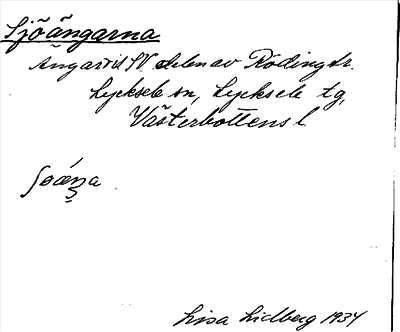 Sjöängarna
Ängar vid SV delen av Rödingtr.
Lycksele sn, Lycksele tg,
Västerbottens l
Lisa Lidberg 1934